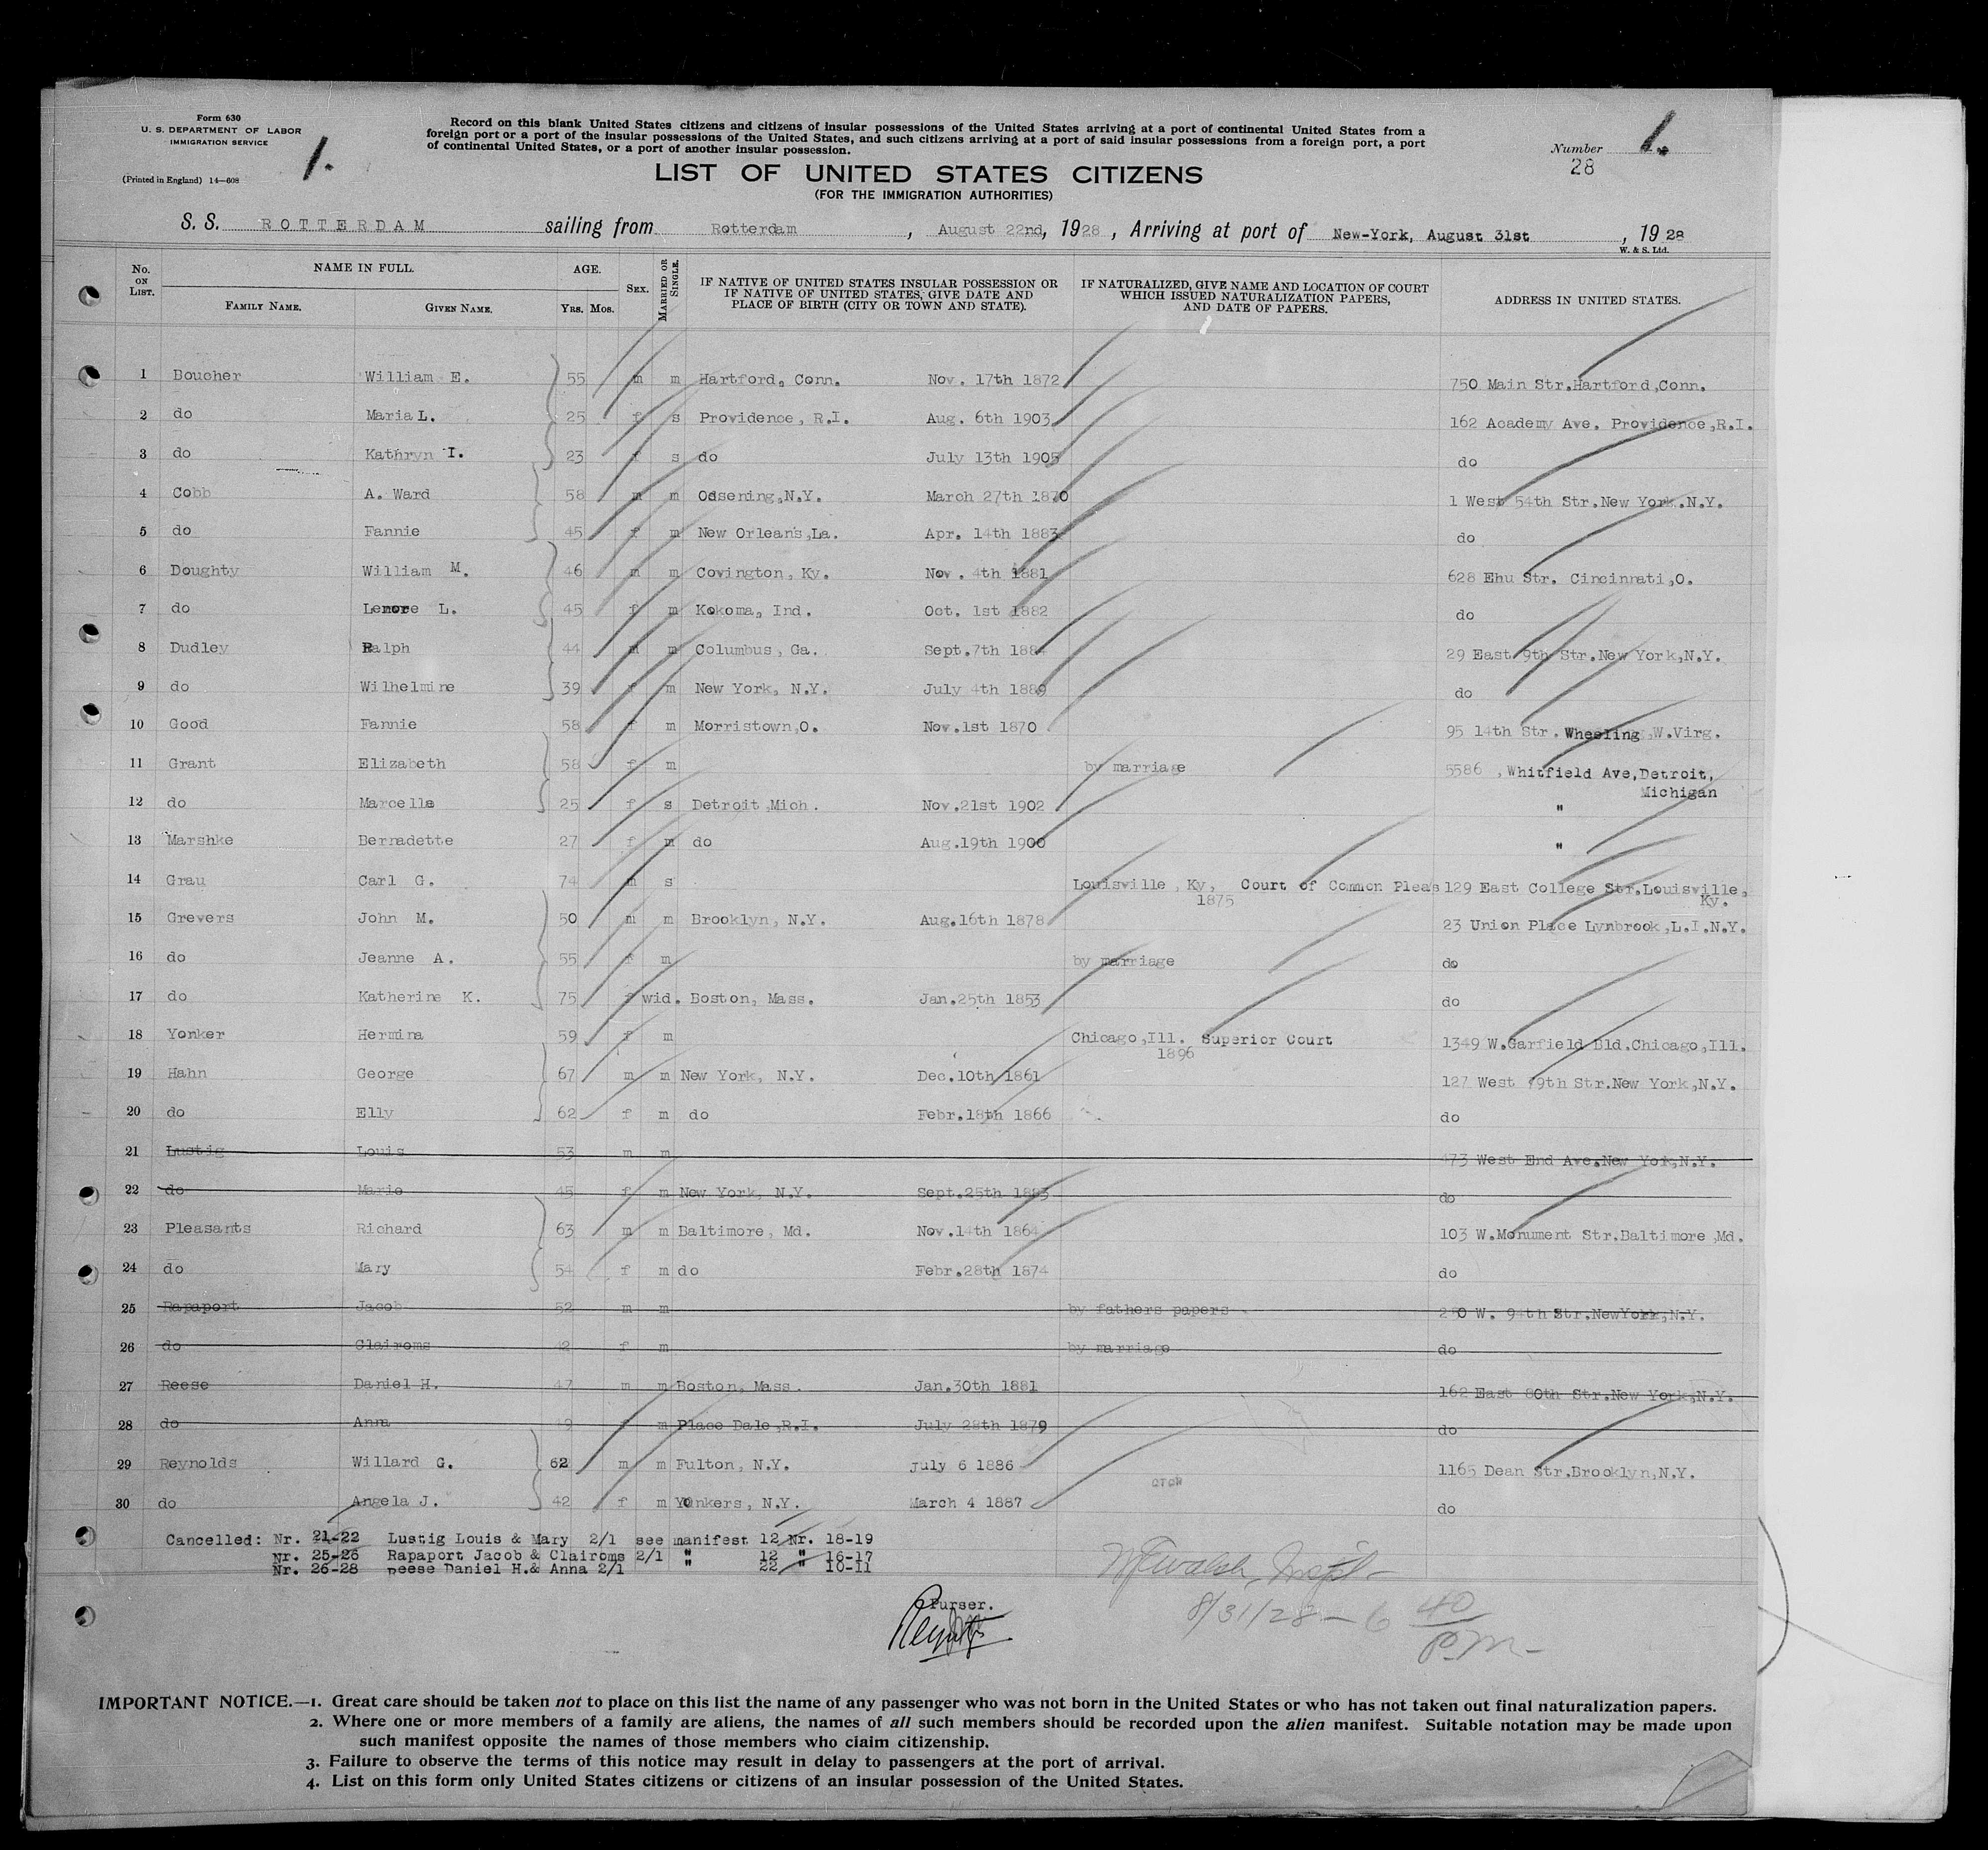 Form 630
U. S. DEPARTMENT OF LABOR
IMMIGRATION SERVICE
(Printed in England) 14—608
1.
Record on this blank United States citizens and citizens of insular possessions of the United States arriving at a port of continental United States from a
foreign port or a port of the insular possessions of the United States, and such citizens arriving at a port of said insular possessions from a foreign port, a port
of continental United States, or a port of another insular possession.
LIST OF UNITED STATES CITIZENS
(FOR THE IMMIGRATION AUTHORITIES)
Number 1.
28
S. S. ROTTERDAM sailing from Rotterdam, August 22nd, 1928, Arriving at port of New-York, August 31st, 1928
W. & S. Ltd.
No. ON LIST. NAME IN FULL. FAMILY NAME. GIVEN NAME. AGE. YRS. MOS. SEX. MARRIED OR SINGLE. IF NATIVE OF UNITED STATES INSULAR POSSESSION OR IF NATIVE OF UNITED STATES, GIVE DATE AND PLACE OF BIRTH (CITY OR TOWN AND STATE). IF NATURALIZED, GIVE NAME AND LOCATION OF COURT WHICH ISSUED NATURALIZATION PAPERS, AND DATE OF PAPERS. ADDRESS IN UNITED STATES.
1 Boucher William E. 55 m m Hartford, Conn. Nov. 17th 1872 750 Main Str.Hartford,Conn.
2 do Maria L. 25 f s Providence, R.I. Aug. 6th 1903 162 Academy Ave. Providence,R.I.
3 do Kathryn I. 23 f s do July 13th 1905 do
4 Cobb A. Ward 58 m m Ossening,N.Y. March 27th 1870 1 West 54th Str.New York.N.Y.
5 do Fannie 45 f m New Orleans,La. Apr. 14th 1883 do
6 Doughty William M. 46 m m Covington, Ky. Nov. 4th 1881 628 Ehu Str. Cincinnati,O.
7 do Lenore L. 45 f m Kokoma, Ind. Oct. 1st 1882 do
8 Dudley Ralph 44 m m Columbus, Ga. Sept.7th 1884 29 East 9th Str.New York,N.Y.
9 do Wilhelmine 39 f m New York, N.Y. July 4th 1889 do
10 Good Fannie 58 f m Morristown,O. Nov.1st 1870 95 14th Str. Wheeling,W.Virg.
11 Grant Elizabeth 58 f m by marriage 5586 , Whitfield Ave,Detroit,
Michigan
12 do Marcella 25 f s Detroit,Mich. Nov.21st 1902 "
13 Marshke Bernadette 27 f m do Aug.19th 1900 "
14 Grau Carl G. 74 m s Louisville, Ky, Court of Common Pleas 129 East College Str.Louisville,
1875 Ky.
15 Grevers John M. 50 m m Brooklyn, N.Y. Aug.16th 1878 23 Union Place Lynbrook,L.I.N.Y.
16 do Jeanne A. 55 f m by marriage do
17 do Katherine K. 75 f wid. Boston, Mass. Jan.25th 1853 do
18 Yonker Hermina 59 f m Chicago,Ill. Superior Court 1349 W.Garfield Bld.Chicago,Ill.
1896
19 Hahn George 67 m m New York, N.Y. Dec.10th 1861 127 West 79th Str.New York,N.Y.
20 do Elly 62 f m do Febr.18th 1866 do
21 Lustig Louis 53 m m 473 West End Ave.New York,N.Y.
22 do Marie 45 f m New York, N.Y. Sept.25th 1883 do
23 Pleasants Richard 63 m m Baltimore, Md. Nov.14th 1864 103 W.Monument Str.Baltimore,Md.
24 do Mary 54 f m do Febr.28th 1874 do
25 Rapaport Jacob 52 m m by fathers papers W. 94th Str.NewYork,N.Y.
26 do Clairoms 42 f m by marriage do
27 Reese Daniel H. 47 m m Boston, Mass. Jan.30th 1881 162 East 80th Str.New York,N.Y.
28 do Anna 49 f m Place Dale,R.I. July 28th 1879 do
29 Reynolds Willard G. 62 m m Fulton, N.Y. July 6 1886 1165 Dean Str.Brooklyn,N.Y.
30 do Angela J. 42 f m Yonkers, N.Y. March 4 1887 do
Cancelled: Nr. 21-22 Lustig Louis & Mary 2/1 see manifest 12 Nr. 18-19
Nr. 25-26 Rapaport Jacob & Clairoms 2/1 " 12 " 16-17
Nr. 26-28 Reese Daniel H.& Anna 2/1 " 22 " 10-11
8/31/28 - 6 40
P.M-
Purser.
IMPORTANT NOTICE.—1. Great care should be taken not to place on this list the name of any passenger who was not born in the United States or who has not taken out final naturalization papers.
2. Where one or more members of a family are aliens, the names of all such members should be recorded upon the alien manifest. Suitable notation may be made upon
such manifest opposite the names of those members who claim citizenship.
3. Failure to observe the terms of this notice may result in delay to passengers at the port of arrival.
4. List on this form only United States citizens or citizens of an insular possession of the United States.